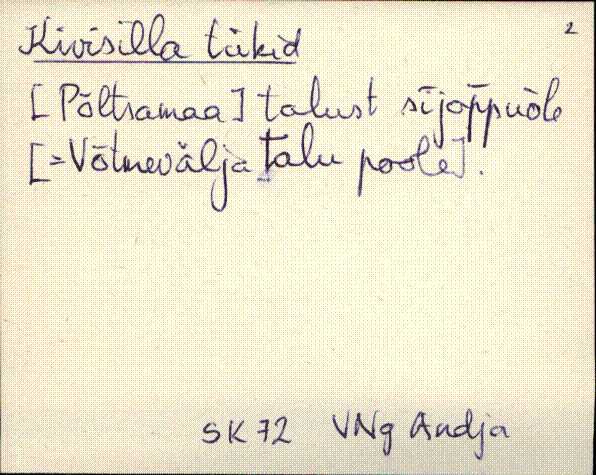 2
Kivisilla tükid
[Põltsamaa] talust sījoppuòle
[=Võtmevälja talu poole].
SK 72 VNg Andja